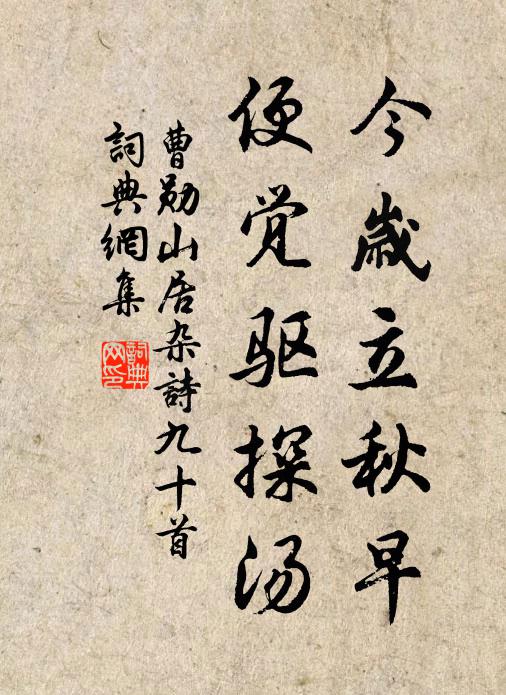 今歲立秋早
便觉驱探汤
曹勋山居杂詩九十首
詞典網集
詞典
网印